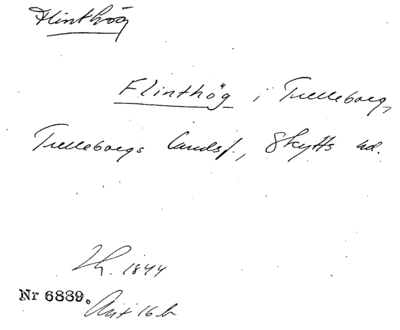 Flinthög
Flinthög i Trelleborg,
Trelleborgs landsf., Skytts hd.
Lh. 1844
Nr 6839.
Avt 16 b